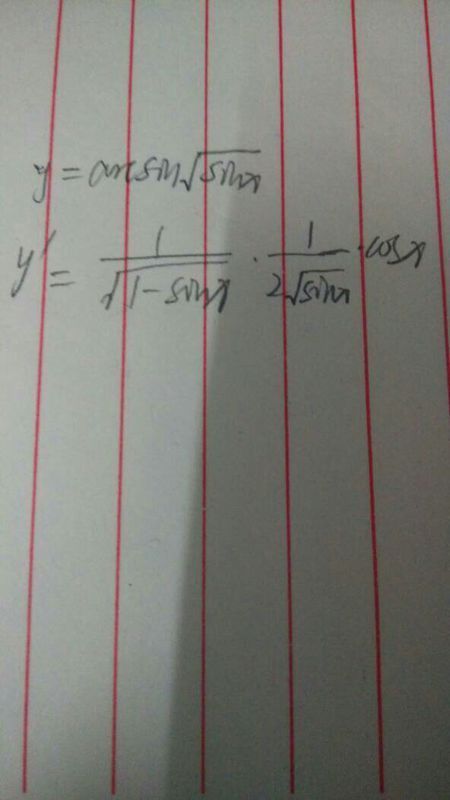 y = arcsin√sinx
y' = 1/√(1-sinx) · 1/(2√sinx) · cosx